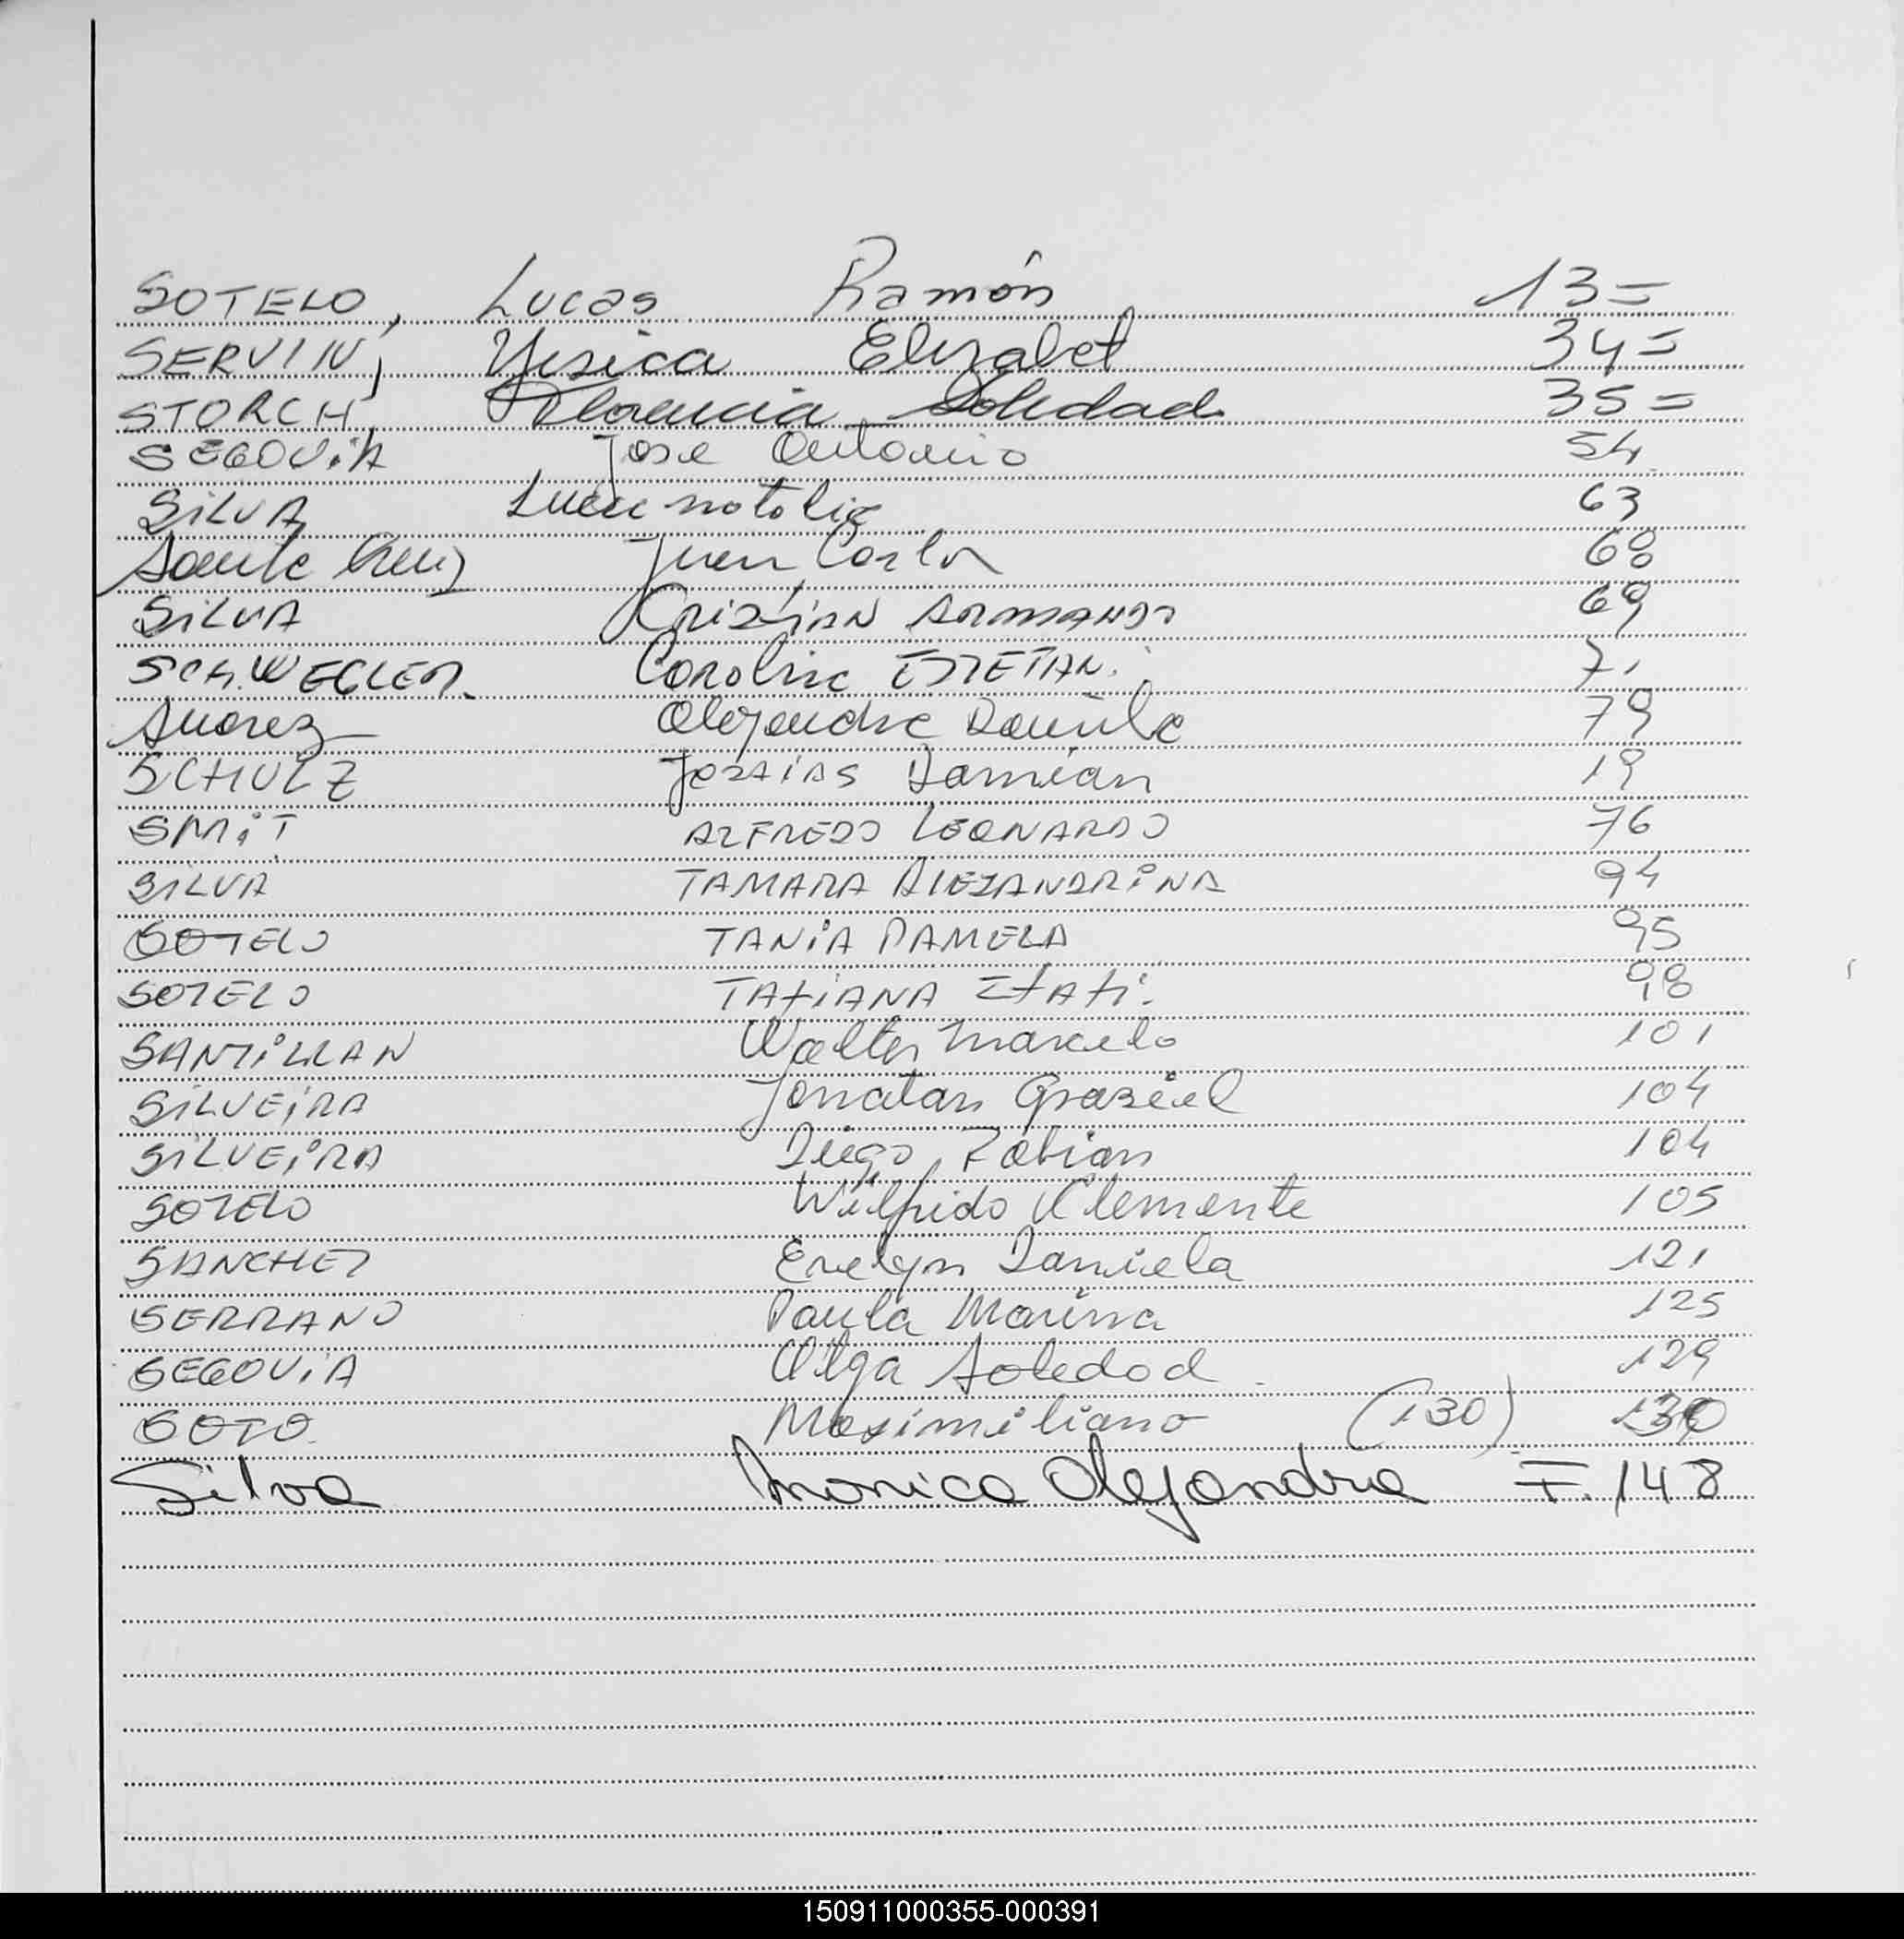 SOTELO, Lucas Ramón 13=
SERVIN, Yesica Elizabet 34=
STORCH, Florencia Soledad 35=
SEGOVIA Jose Antonio 54
SILVA Lucia natalia 63
Santa Cruz Juan Carlos 68
SILVA Cristian ARMANDO 69
SCHWEGLER Carolina 71
Suarez Alejandra Daniela 79
SCHULZ Jesaias Damian 19
SMiT ALFREDO LEONARDO 76
SILVA TAMARA ALEJANDRiNA 94
SOTELO TANiA PAMELA 95
SOTELO TAtiANA Itati. 98
SANTiLLAN Walter Marcelo 101
SiLVEiRA Jonatan Graziel 104
SiLVEiRA Diego Fabian 104
SOTELO Wilfrido Clemente 105
SANCHEZ Evelyn Daniela 121
SERRANO Paula Marina 125
SEGOViA Olga Soledad 129
SOTO Maximiliano (130) 130
Silva Monica Alejandra F. 148
150911000355-000391